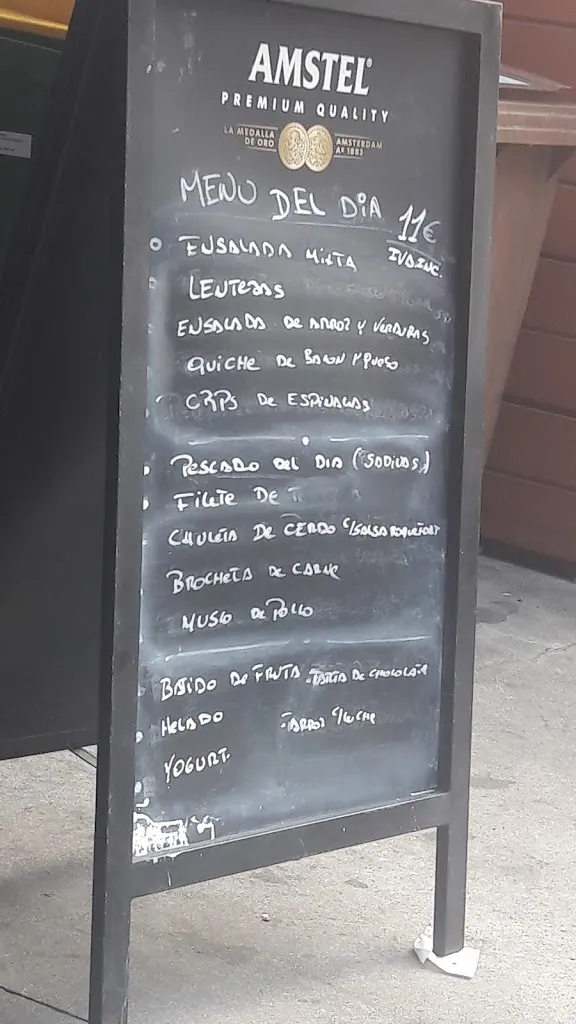 AMSTEL
PREMIUM QUALITY
LA MEDALLA DE ORO
AMSTERDAM Aº 1883
MENU DEL DiA 11€
IVA INC.
ENSALADA MIXTA
LENTEJAS
ENSALADA DE ARROZ Y VERDURAS
QUICHE DE BACON Y PUERO
CREPS DE ESPINACAS
PESCADO DEL DIA
FILETE DE
CHULETA DE CERDO C/SALSA ROQUEFORT
BROCHETA DE CARNE
MUSLO DE POLLO
BATIDO DE FRUTA -TARTA DE CHOCOLATE
HELADO -ARROZ C/LECHE
YOGURT